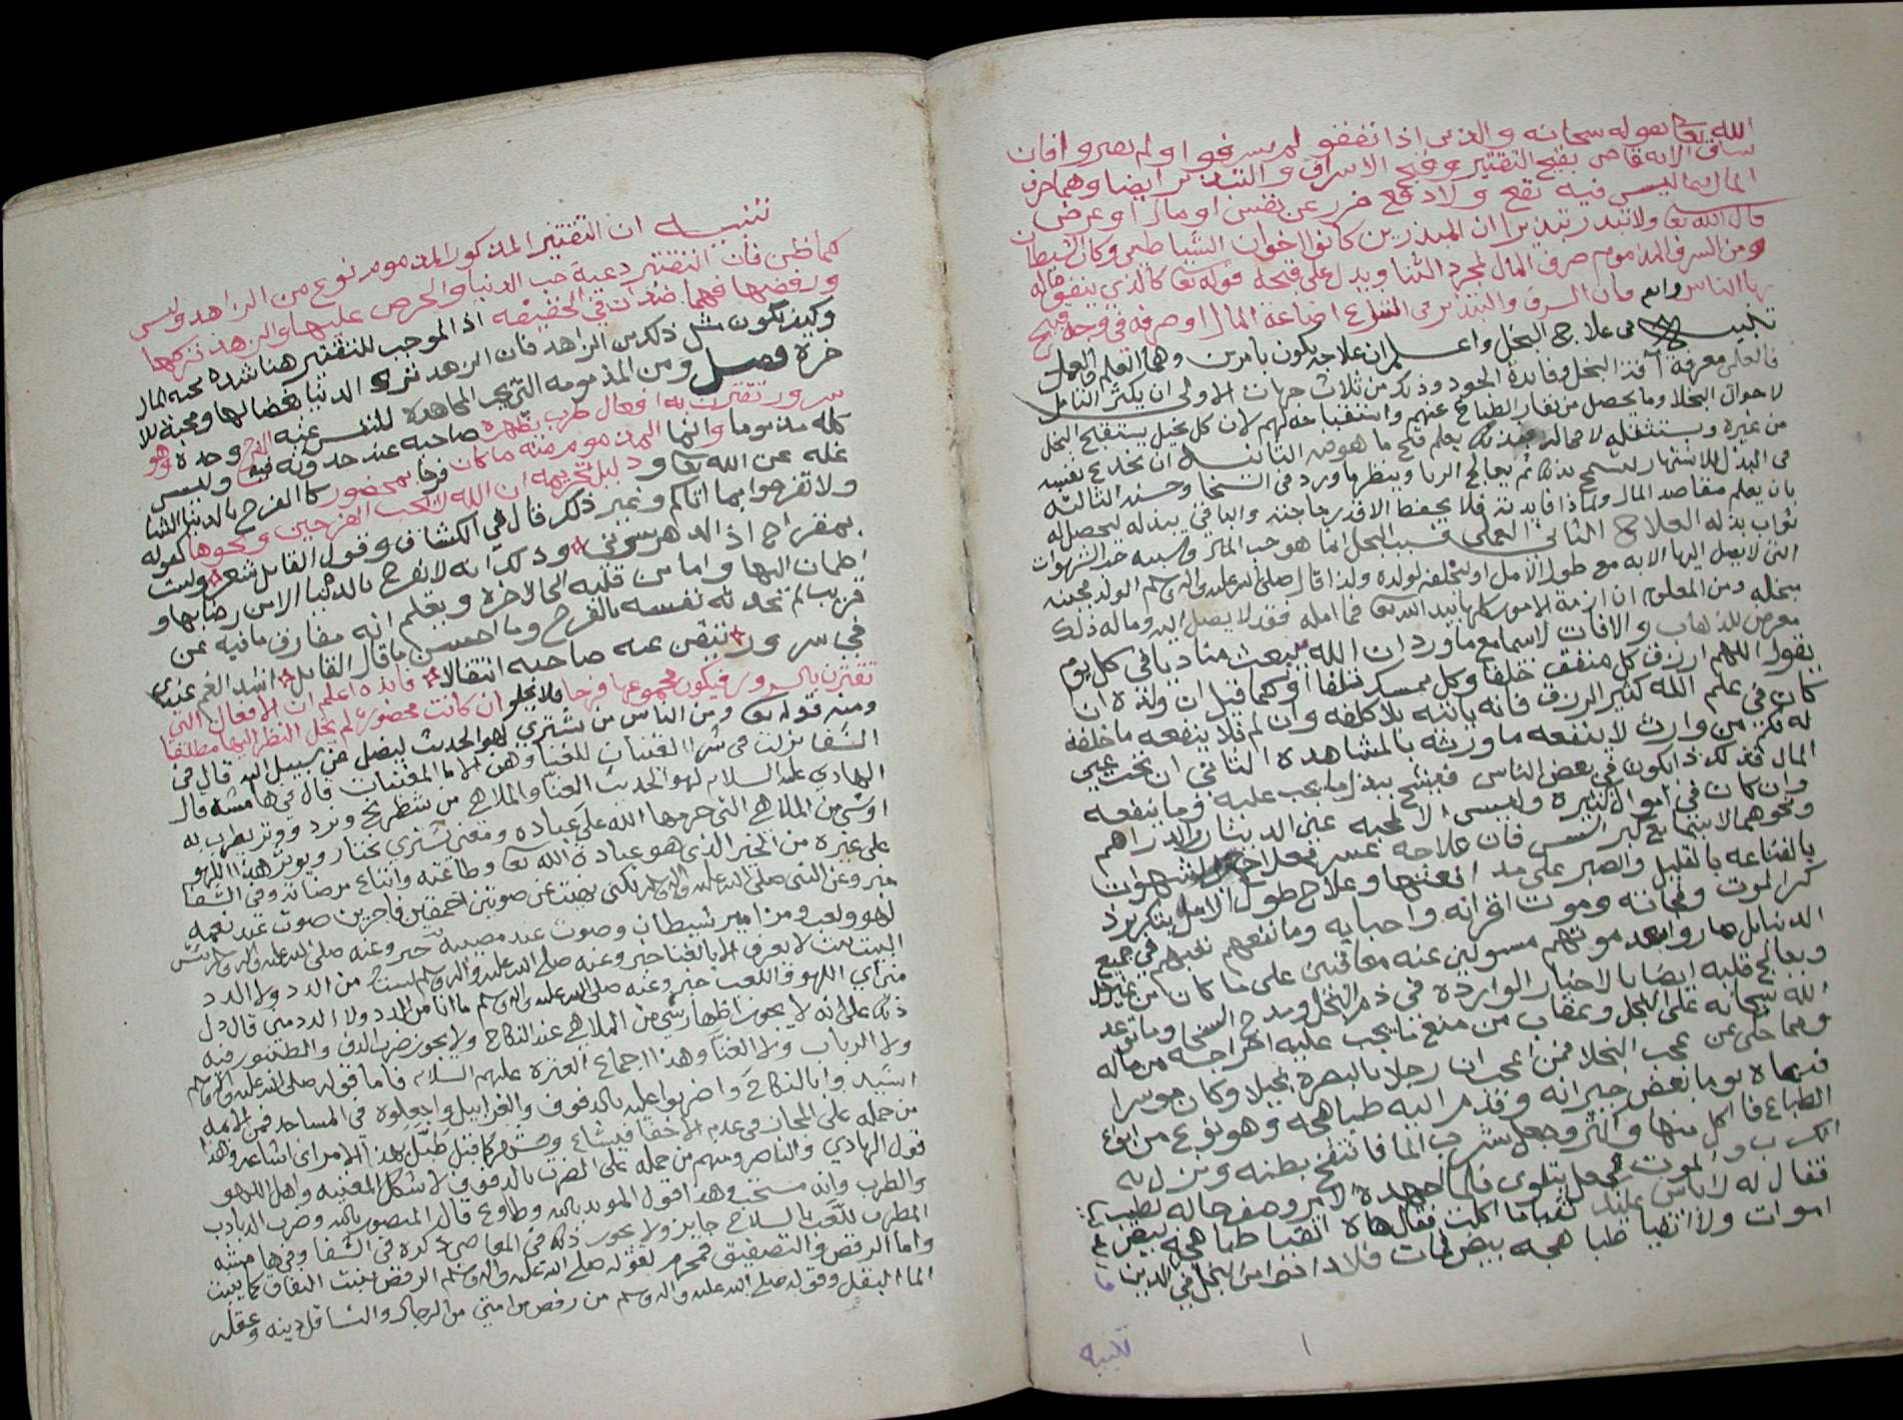 الله تعا بقوله سبحانه والذين اذا نفقوا لم يسرفوا ولم يقتروا فان
سياق الايه قاض بقبح التقتير وقبح الاسراف والتبذير ايضا وهما صرف
المال فيما ليس فيه نفع ولا دفع ضرر عن نفس او مال او عرض
قال الله تعا ولا تبذر تبذيرا ان المبذرين كانوا اخوان الشياطين وكان الشيطان
ومن السرف المذموم صرف المال لمجرد الثنا ويدل على قبحه قوله تعا كالذي ينفق ماله
ريا الناس واعلم فان السرف والتبذير في الشرع اضاعة المال او صرفه في وجه قبيح
تنبيه في علاج البخل واعلم ان علاجه يكون بامرين وهما العلم والعمل
فالعلم معرفة آفة البخل وفائدة الجود وذلك من ثلاث جهات الاولى ان يكثر التامل
لاحوال البخلا وما يحصل من نفار الطباع عنهم واستقباحه لهم لان كل بخيل يستقبح البخل
من غيره ويستثقله لا محاله فبذلك يعلم قبح ما هو فيه الثانيه ان يخدع نفسه
في البذل للاشتهار ليسمح بذلك ثم يعالج الريا وينظر ما ورد في السخا وحسنه الثالثه
بان يعلم مقاصد المال ولماذا فايدته فلا يحفظ الا قدر حاجته والباقي يبذله ليحصل له
ثواب بذله العلاج الثاني العملي فسبب البخل انما هو حب المال وسببه حب الشهوات
التي لا يصل اليها الا به مع طول الامل او ليخلفه لولده ولذا قال صلى الله عليه واله وسلم الولد مجبنه
مبخله ومن المعلوم ان ازمة الامور كلها بيد الله تعا فما امله فقد لا يصل اليه وماله ذلك
معرض للذهاب والافات لاسيما مع ما ورد ان الله يبعث مناديا في كل يوم
يقول اللهم ارزق كل منفق خلفا وكل ممسك تلفا او كما قيل ان ولده ان
كان في علم الله كثير الرزق فانه ياتيه بلا كلفه وان لم فلا ينفعه ما خلفه
له فكم من وارث لا ينفعه ما ورثه بالمشاهدة الثاني ان يحب عين
المال فذلك ذا يكون في بعض الناس فيشح ببذل ما يجب عليه وما ينفعه
وان كان في اموال كثيره وليس الا لمحبه عين الدينار والدراهم
ونحوهما لاسيما مع كبر السن فان علاجه عسر فعلاج الشهوات
بالقناعه بالقليل والصبر على مد افعتها وعلاج طول الامل بتكرير ذ
كر الموت وفجاته وموت اقرانه واحبابه وما نفعهم تعبهم في جميع
الدنيا بل صاروا بعد موتهم مسولين عنه معاقبين على ما كان من غير حل
ويعالج قلبه ايضا بالاخبار الوارده في ذم البخل ومدح السخا وما توعد
الله سبحانه على البخل وعقاب من منع ما يجب عليه اخراجه من ماله
ومما حكي عن عجب البخلا فمن اعجب ان رجلا بالبصرة بخيلا وكان موسرا
فدعاه يوما بعض جيرانه وقدم اليه طباهجه وهو نوع من انواع
الطباع فاكل منها واكثر وجعل يشرب الما فانتفخ بطنه ونزل به
الكرب والموت فجعل يتلوى فلما اجهده الامر وصف حاله لطبيب
فقال له لا باس عليك تقيا ما اكلت فقال هاه اتقيا طباهجه ببيض
اموات ولا اتقيا طباهجه ببيض فمات فلا دا ادوا من البخل في الدين
تنبيه
تنبيه ان التقتير المذكور المذموم نوع من الزهد وليس
كما ظن فان التقتير دعية حب الدنيا والحرص عليها والزهد تركها
ورفضها فهما ضدان في الحقيقه اذ الموجب للتقتير هنا شدة محبه المال
وكيف يكون مثل ذلك من الزهد فان الزهد ترك الدنيا بغضا لها ومحبة للا
خرة فصل ومن المذمومه التي يجب المجاهدة للنفس عنه الفرح وحده وهو
سرور تقترن به افعال طرب يظهره صاحبه عند حدوثه فيه وليس
كله مذموما وانما المذموم منه ما كان فرحا بمحضور كالفرح بالدنيا الشا
غله عن الله تعا ودليل تحريمه ان الله لا يحب الفرحين ونحوها كقوله
ولا تفرحوا بما اتاكم وغير ذلك قال في الكشاف وقول القايل شعر ولست
بمفراح اذ الدهر سرني وذلك انه لا يفرح بالدنيا الا من رضا بها و
اطمان اليها واما من قلبه الى الاخرة ويعلم انه مفارق ما فيه عن
قريب لم تحدثه نفسه بالفرح وما احسن ما قال القايل اشد الغم عندي
في سرور تيقن عنه صاحبه انتقالا فايده اعلم ان الافعال التي
تقترن بالسرور فيكون مجموعها فرحا فلا يخلو ان كانت محضورة لم يحل النظر اليها مطلقا
ومنه قوله تعا ومن الناس من يشتري لهو الحديث ليضل عن سبيل الله قال في
الشفا نزلت في شرا القينات للغنا وهن الاما المغنيات قال في هامشه قال
الهادي عليه السلام لهو الحديث الغنا والملاهي من شطرنج ونرد ووتر يطرب له
او شي من الملاهي التي حرمها الله على عباده ومعنى يشتري يختار ويوثر هذا اللهو
على غيره من الخير الذي هو عبادة الله تعا وطاعته واتباع مرضاته وفي الشفا
خبر وعن النبي صلى الله عليه واله وسلم نهيت عن صوتين احمقين فاجرين صوت عند نعمه
لهو ولعب ومزامير شيطان وصوت عند مصيبه خبر وعنه صلى الله عليه واله وسلم
خبر وعنه صلى الله عليه واله وسلم لست من الدد ولا الدد
مني اي اللهو واللعب خبر وعنه صلى الله عليه واله وسلم ما انا من الدد ولا الدد مني قال دل
ذلك على انه لا يجوز اظهار شي من الملاهي عند النكاح ولا يجوز ضرب الدف والطنبور فيه
ولا الرباب ولا الغنا وهذا اجماع العتره عليهم السلام فاما قوله صلى الله عليه واله وسلم
اشيدوا بالنكاح واضربوا عليه بالدفوف والغرابيل واجعلوه في المساجد فمن الايمه
من حمله على المجاز في عدم الاخفا فيشاع كما قيل طبل بهذا الامر اي اشاعه وهذا
قول الهادي والناصر ومنهم من حمله على الضرب بالدفوف لا شكل المغنيه واهل اللهو
والطرب وانه مستحب وهذا قول المويد بالله وطاوع قال المنصور بالله وضرب الدبادب
المطرب للعب بالسلاح جايز ولا يجوز ذلك في المعاصي ذكره في الشفا وفي هامشه
واما الرقص والتصفيق فمحرم لقوله صلى الله عليه واله وسلم الرقص ينبت النفاق كما ينبت
الما البقل وقوله صلى الله عليه واله وسلم من رقص من امتي من الرجال والنسا قل دينه وعقله